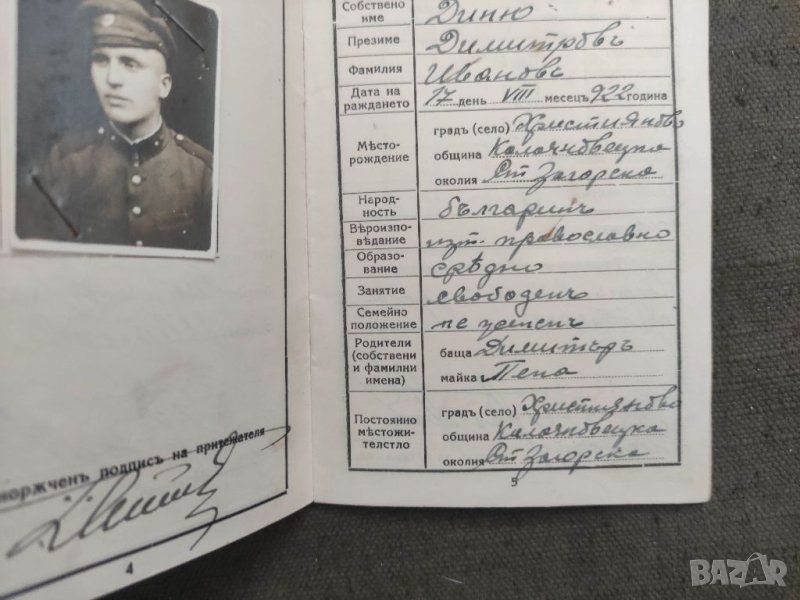 Собствено
име Диню
Презиме Димитровъ
Фамилия Ивановъ
Дата на
раждането 17 день VIII месецъ 922 година
Мѣсто-
рождение
градъ (село) Християново
община Калояновецка
околия Ст Загорска
Народ-
ность българинъ
Вѣроизпо-
вѣдание изт. православно
Образо-
вание срѣдно
Занятие свободенъ
Семейно
положение не жененъ
Родители
(собствени
и фамилни
имена)
баща Димитъръ
майка Пена
Постоянно
мѣстожи-
телстло
градъ (село) Християново
община Калояновецка
околия Ст Загорска
5
норжченъ подпись на притежателя
4
BAZAR